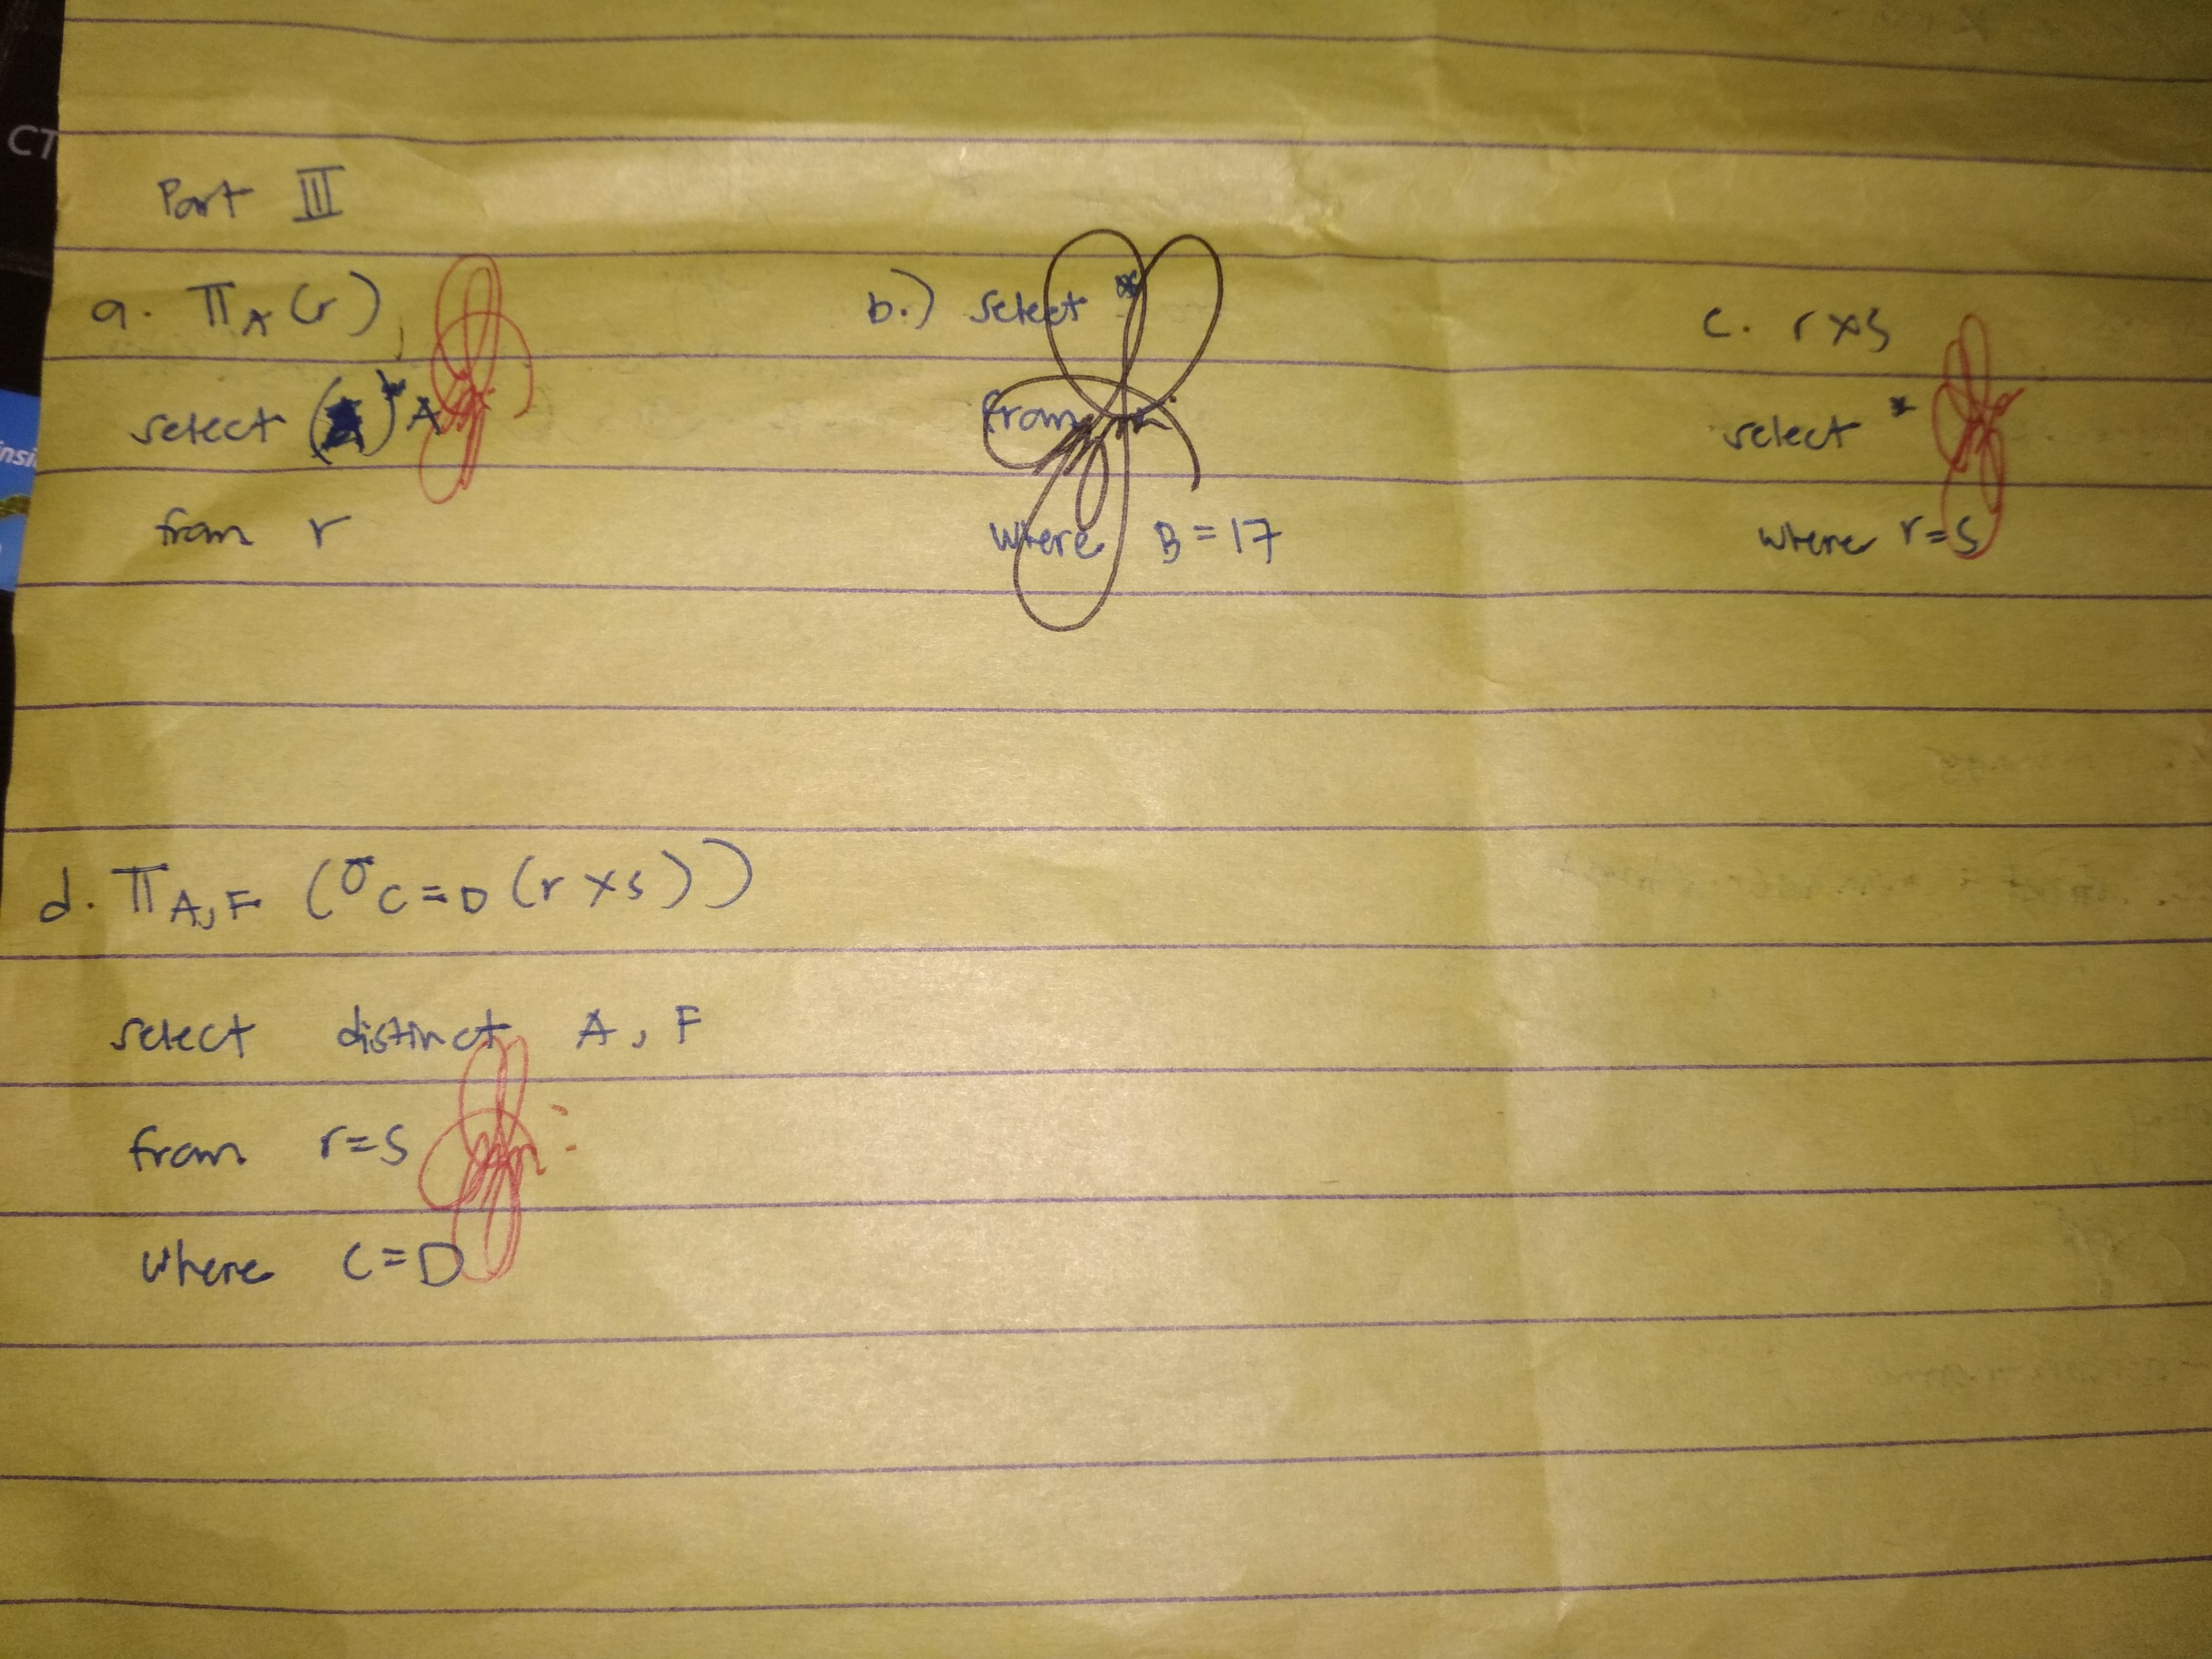 CT
insi
Part III
a. π A (r)
select A
from r
b.) select *
from
where B = 17
c. r × s
select *
where r = s
d. π A, F (σ C = D (r × s))
select distinct A, F
from r = s
where C = D